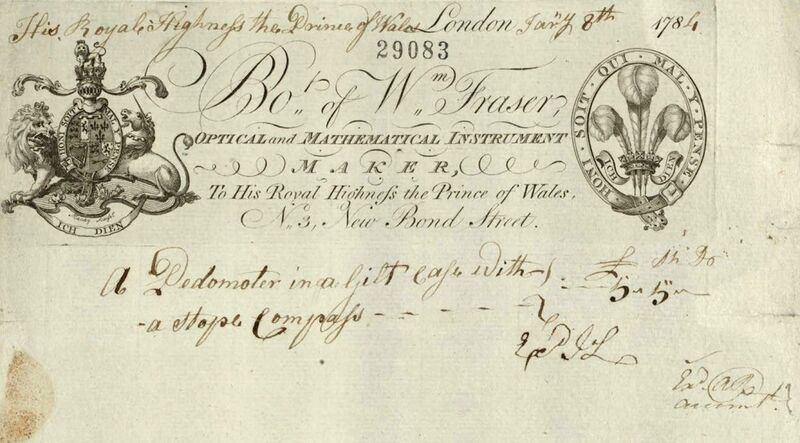 His Royale Highness the Prince of Wales London Jan'y 8th 178
29083
HONI SOIT QUI MAL Y PENSE
Bo.t of W.m Fraser,
OPTICAL and MATHEMATICAL INSTRUMENT
MAKER,
To His Royal Highneſs the Prince of Wales,
N.o 3, New Bond Street.
HONI · SOIT · QUI · MAL · Y · PENSE
ICH DIEN
ICH DIEN
A Pedomoter in a Gilt Case with
a Compass
£
5 5
Ex.d